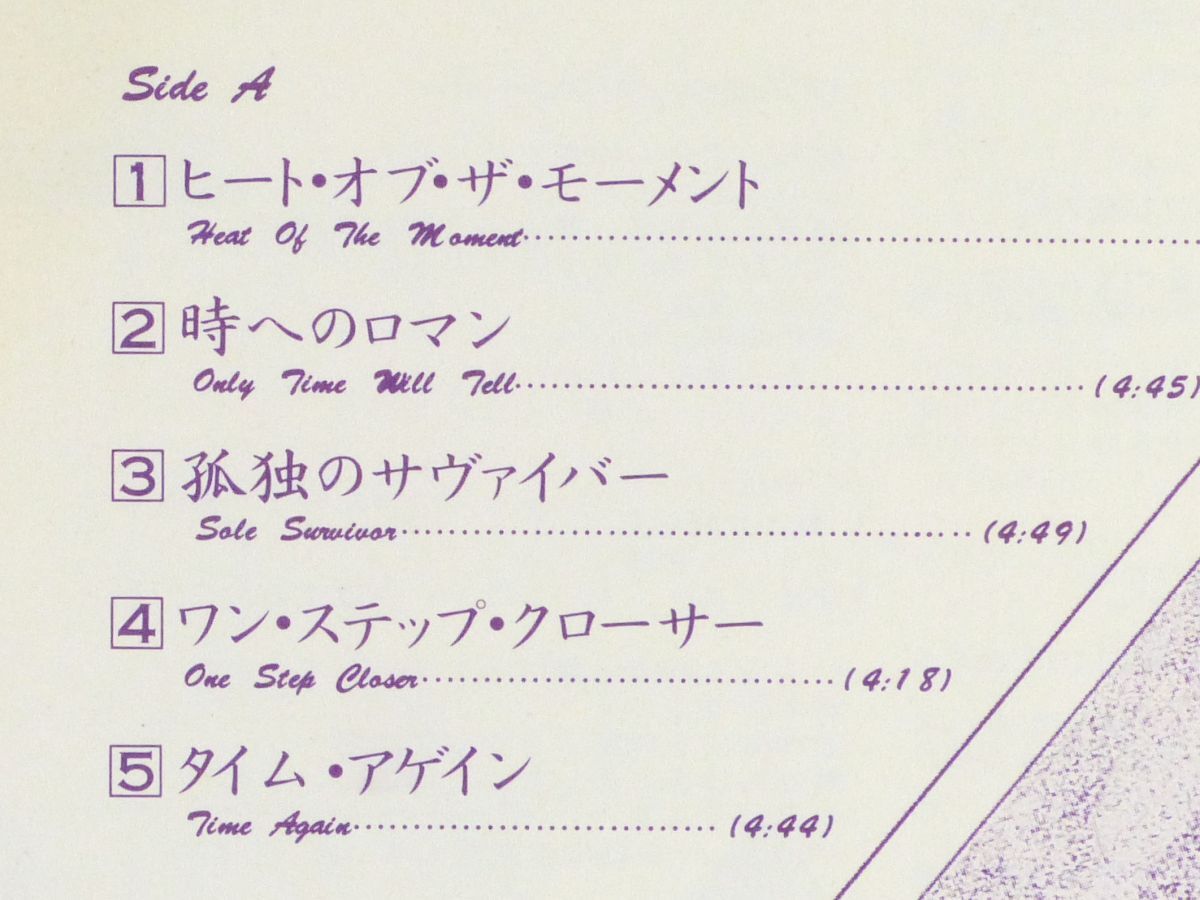 Side A
1 ヒート・オブ・ザ・モーメント
Heat Of The Moment
2 時へのロマン
Only Time Will Tell (4:45)
3 孤独のサヴァイバー
Sole Survivor (4:49)
4 ワン・ステップ・クローサー
One Step Closer (4:18)
5 タイム・アゲイン
Time Again (4:44)